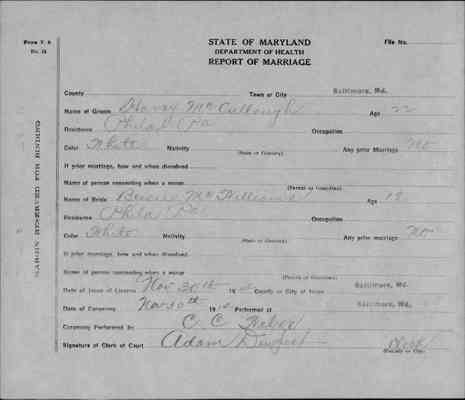 Form V. S
No. 18
STATE OF MARYLAND
DEPARTMENT OF HEALTH
REPORT OF MARRIAGE
File No.
MARGIN RESERVED FOR BINDING
County Town or City Baltimore, Md.
Name of Groom Harvey McCullough Age 22
Residence Phila Pa Occupation
Color White Nativity (State or Country) Any prior Marriage no
If prior marriage, how and when dissolved
Name of person consenting when a minor (Parent or Guardian)
Name of Bride Bessie McWilliams Age 18
Residence Phila Pa Occupation
Color White Nativity (State or Country) Any prior marriage no
If prior marriage, how and when dissolved
Name of person consenting when a minor (Parent or Guardian)
Date of Issue of License Nov 30th 19 County or City of Issue Baltimore, Md.
Date of Ceremony Nov 30th 19 Performed at Baltimore, Md.
Ceremony Performed By C. C.
Signature of Clerk of Court Adam Clerk
(County or City)